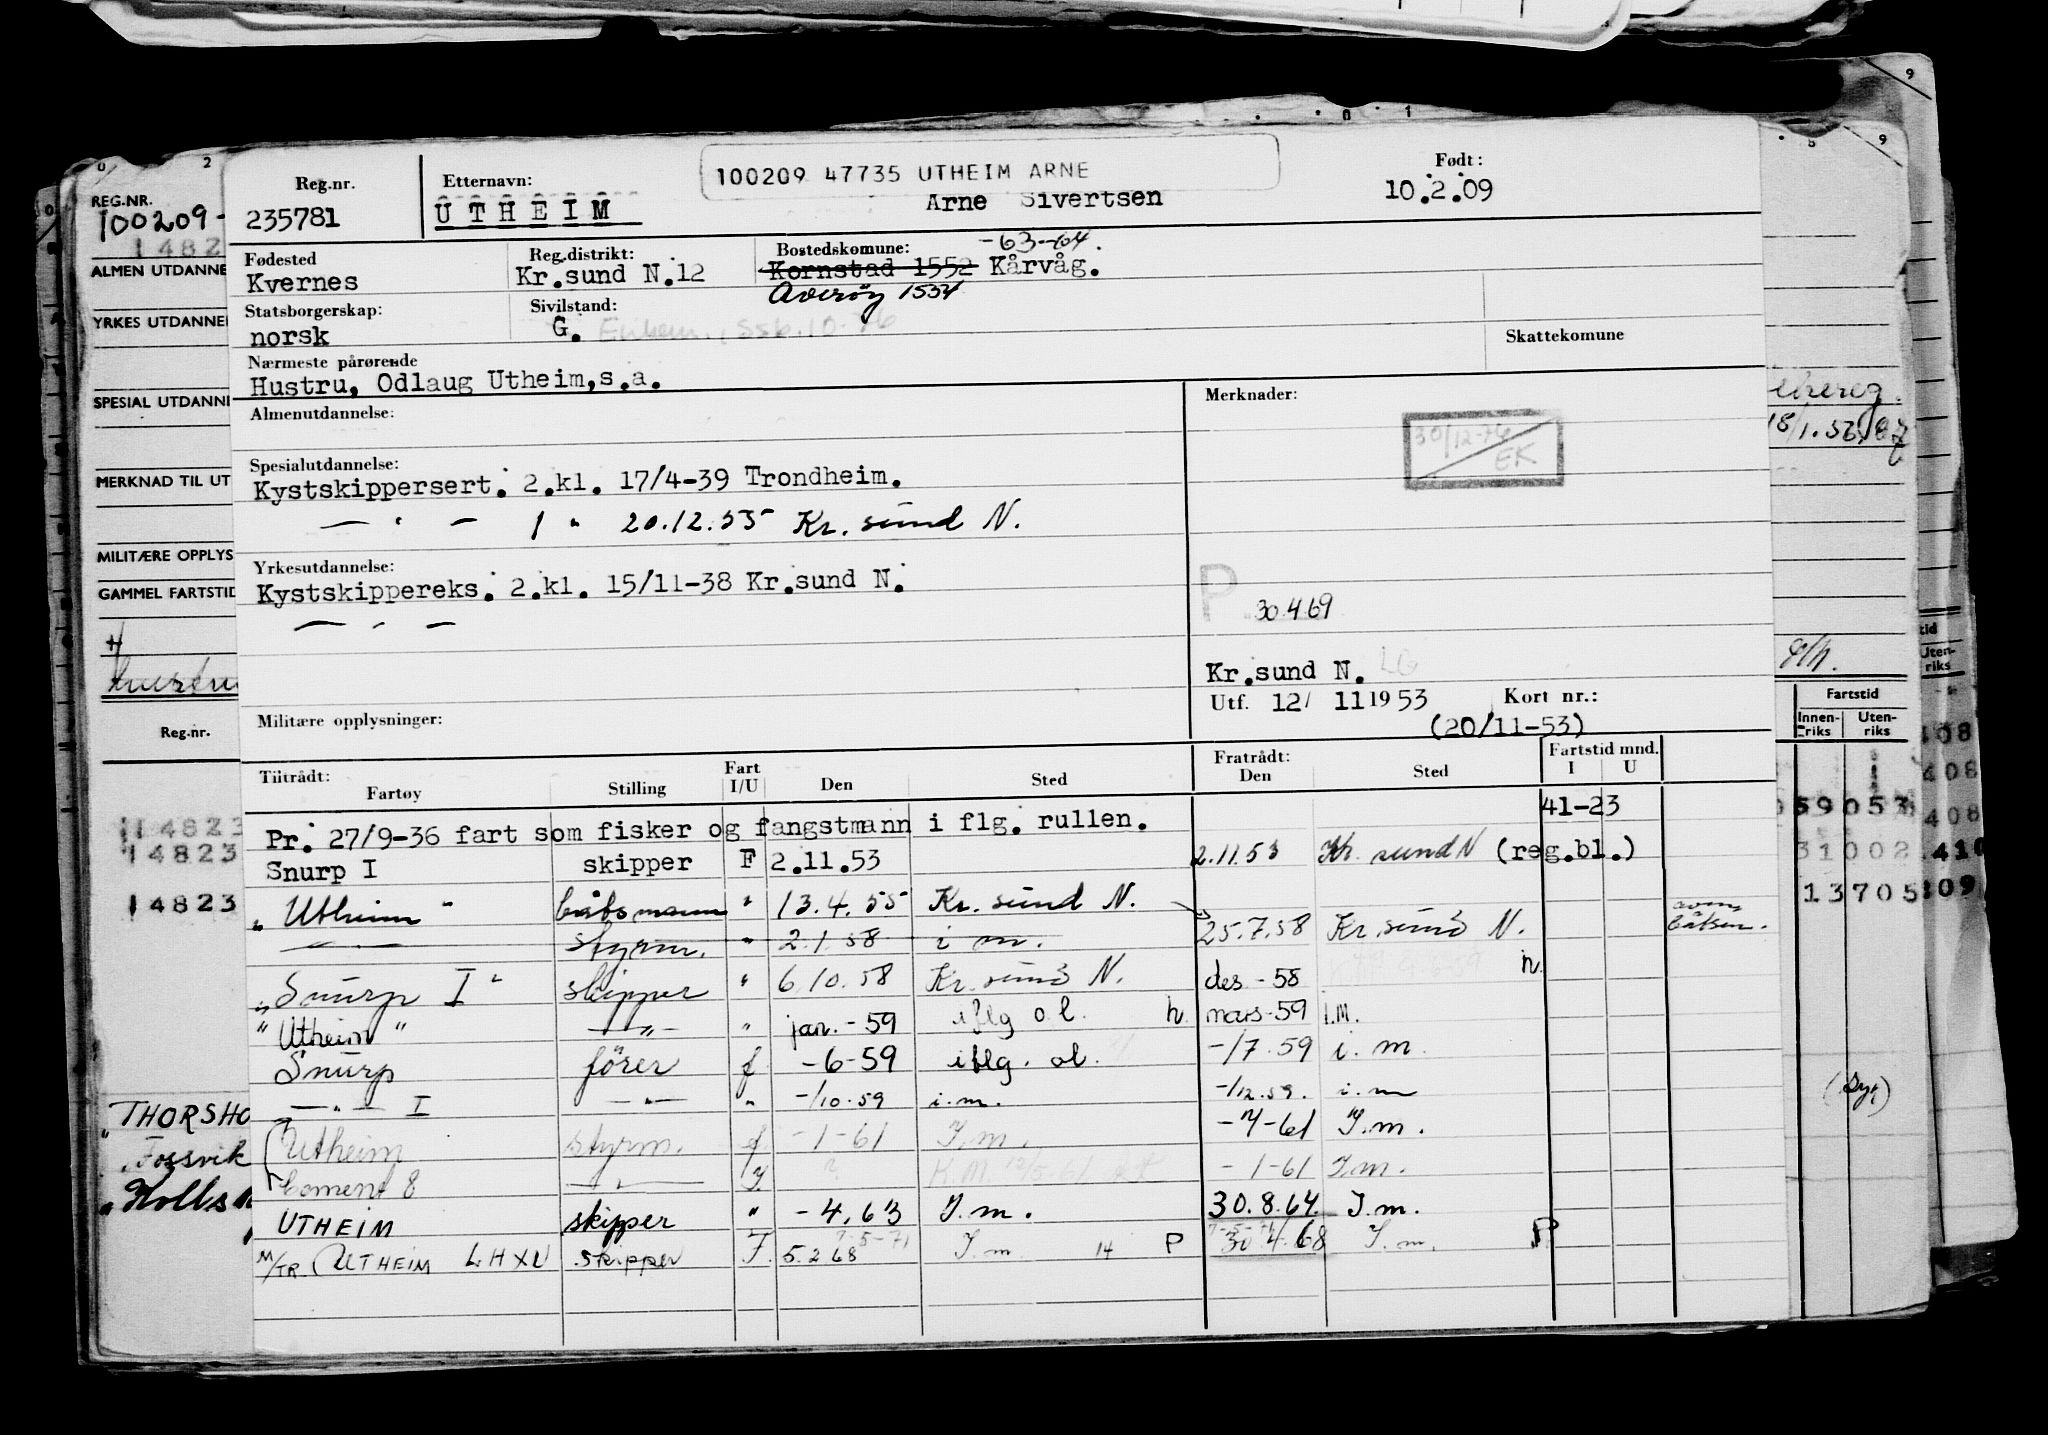 Reg.nr. Etternavn: 100209 47735 UTHEIM ARNE Født:
235781 UTHEIM Arne Sivertsen 10.2.09
Fødested Reg.distrikt: Bostedskomune: -63-64.
Kvernes Kr.sund N.12 Kornstad 1552 Kårvåg.
Averøy 1554
Statsborgerskap: Sivilstand:
norsk G. Skattekomune
Nærmeste pårørende
Hustru, Odlaug Utheim, s.a.
Almenutdannelse: Merknader:
30/12-76
EK
Spesialutdannelse:
Kystskippersert. 2.kl. 17/4-39 Trondheim.
— " — 1 " 20.12.55 Kr. sund N.
Yrkesutdannelse:
Kystskippereks. 2.kl. 15/11-38 Kr.sund N.
— " —
P 30.4.69
Kr.sund N. LG
Militære opplysninger: Utf. 12/ 11 1953 Kort nr.:
(20/11-53)
Tiltrådt: Fartøy Stilling Fart I/U Den Sted Fratrådt: Den Sted Fartstid mnd. I U
Pr. 27/9-36 fart som fisker og fangstmann i flg. rullen. 41-23
Snurp I skipper F 2.11.53 2.11.53 Kr. sund N (reg.bl.)
"Utheim" båtsmann " 13.4.55 Kr. sund N.
— " — styrm. " 2.1.58 i m. 25.7.58 Kr. sund N.
"Snurp I" skipper " 6.10.58 Kr. sund N. des -58 h
"Utheim" — " — " jan. -59 i flg o.l. h mars-59 I.M.
Snurp förer f -6-59 i flg. ol. -/7.59 i. m.
— " — I — " — " -/10.59 i.m. -/12.59. i. m
Utheim styrm. f. -1-61 I.m. -4-61 I.m.
Coment 8 — " — I. -1-61 I.m.
UTHEIM skipper " -4.63 I.m. 30.8.64. I.m.
M/TR. UTHEIM LHXU skipper F. 5.2.68 I.m 14 P 30.4.68 I.m. P
REG.NR.
100209-
ALMEN UTDANNE
YRKES UTDANNE
SPESIAL UTDANN
MERKNAD TIL UT
MILITÆRE OPPLYS
GAMMEL FARTSTID
Reg.nr.
14823
14823
14823
"THORSHO
"Fossvik
18/1.56
Fartstid
Innen-riks Uten-riks
59053
31002
13705
408
408
408
410